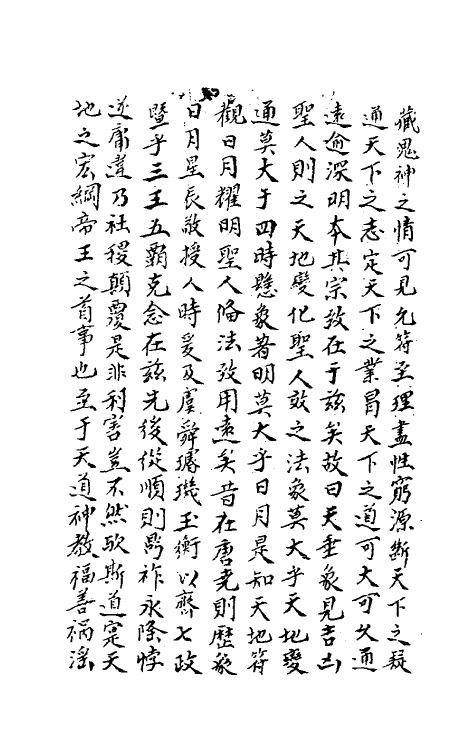 藏鬼神之情可見允符至理盡性窮源斷天下之疑
通天下之志定天下之業冒天下之道可大可久通
遠逾深明本其宗致在于兹矣故曰天垂象見吉凶
聖人則之天地變化聖人效之法象莫大乎天地變
通莫大于四時懸象著明莫大乎日月是知天地符
觀日月耀明聖人偹法致用遠矣昔在唐尭則歷象
日月星辰敬授人時爰及虞舜璿璣玉衡以齊七政
暨乎三王五霸克念在兹先後從順則鼎祚永隆悖
逆庸違乃社稷顛覆是非利害豈不然歟斯道寔天
地之宏綱帝王之首事也至于天道神教福善禍淫